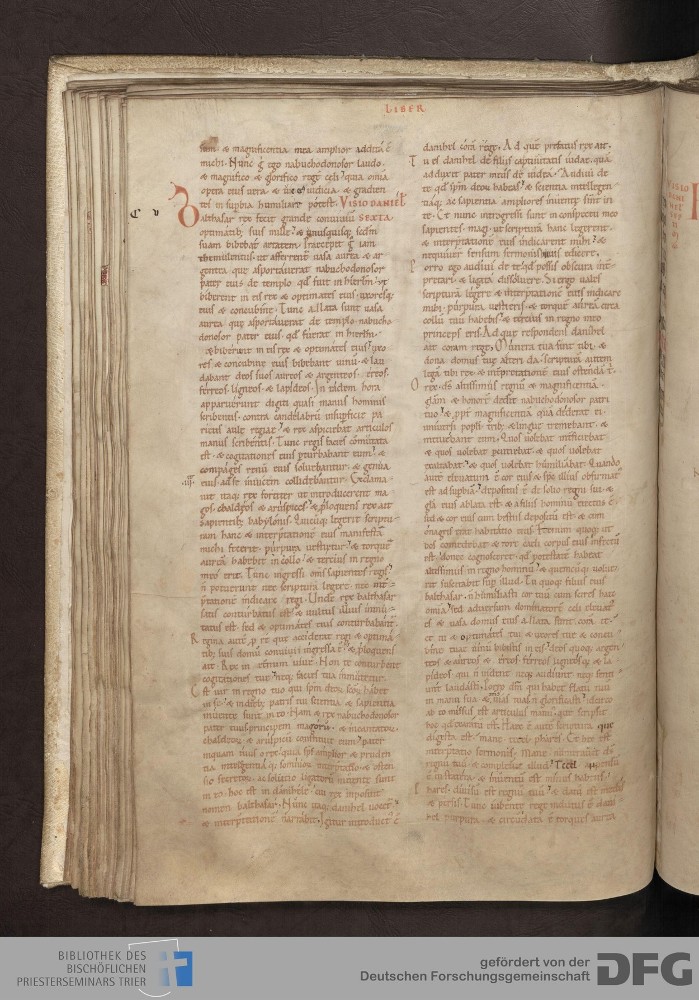 LIBER
sum & magnificentia mea amplior addita ē
michi. Nunc g̃ ego nabuchodonosor laudo
& magnifico & glorifico regē celi. quia omīa
opera eius uera & uię ei' iudicia & gradien
tes in supbia humiliare potest. VISIO DANIEL
C V
Balthasar rex fecit grande conuiuiū SEXTA
optimatib; suis mille. & unusquisq; scdm
suam bibebat aetatem. Precepit g̃ iam
themulentus ut afferrent uasa aurea & ar
gentea que asportauerat nabuchodonosor
pater eius de templo qd fuit in hierłm. ut
biberent in eis rex & optimates eius. uxoresq;
eius & concubine. Tunc allata sunt uasa
aurea que asportauerat de templo nabucho
donosor pater eius. qd fuerat in hierłm.
& biberunt in eis rex & optimates eius. uxo
res & concubine eius bibebant uinū. & lau
dabant deos suos aureos & argenteos. ereos.
ferreos. ligneos & lapideos. In eadem hora
apparuerunt digiti quasi manus hominis
scribentis. contra candelabrū in supficie pa
rietis aule regiae. & rex aspiciebat articulos
manus scribentis. Tunc regis facies cōmutata
est. & cogitationes eius pturbabant eum. &
compages renū eius soluebantur. & genua
eius ad se inuicem collidebantur. Exclama
uit itaq; rex fortiter ut introducerent ma
gos. chaldeos & aruspices. & ploquens rex ait
sapientib; babylonis. Quicūq; legerit scriptu
ram hanc & interptationē eius manifestā
michi fecerit. purpura uestietur. & torquē
aureā habebit in collo. & tercius in regno
meo erit. Tunc ingressi oms sapientes regis
ñ potuerunt nec scripturā legere. nec int̃
ptationē indicare regi. Unde rex balthasar
satis conturbatus est. & uultus illius inmu
tatus est. sed & optimates eius conturbabant.
Regina autē p re que acciderat regi & optima
tib; suis domū conuiuii ingressa ē. & ploquens
ait. Rex in eternum uiue. Non te conturbent
cogitationes tue. neq; facies tua inmutetur.
Est uir in regno tuo qui spm deoꝝ scōꝝ habet
in se. & in dieb; patris tui scientia & sapientia
inuente sunt in eo. Nam & rex nabuchodonosor
pater tuus principem magorū. & incantatorū
chaldeorū & aruspicū constituit eum. pater
inquam tuus o rex. quia sps amplior & pruden
tia intelligentia q; & somniorū interptatio & osten
sio secretorū. ac solutio ligatorū inuente sunt
in eo. hoc est in daniele. cui rex imposuit
nomen balthasar. Nunc itaq; danihel uocet'
& interptationē narrabit. Igitur introduct' ē
danihel corā rege. Ad quē prefatus rex ait.
Tu es danihel de filiis captiuitatis iudae. quā
adduxit pater meus de iudea. Audiui de
te qd spm deoꝝ habeas. & scientia intellegen
tiaq; ac sapientia ampliores inuente sint in
te. Et nunc introgressi sunt in conspectu meo
sapientes. magi. ut scripturā hanc legerent
& interptationē eius indicarent mihi. &
nequiuer̃ sensum sermonis huius edicere.
Porro ego audiui de te qd possis obscura int̃
pretari. & ligata dissoluere. Si ergo uales
scripturā legere & interptationē eius indicare
mihi. purpura uestieris. & torquē aureā circa
collū tuū habebis. & tercius in regno meo
princeps eris. Ad que respondens danihel
ait coram rege. Munera tua sint tibi. &
dona domus tuę alteri da. Scripturā autem
legā tibi rex. & interptationē eius ostendā t'.
O rex. dš altissimus regnū & magnificentiā.
glām & honorē dedit nabuchodonosor patri
tuo. & ppt̃ magnificentiā quā dederat ei.
uniuersi popłi. trib; & linguę tremebant. &
metuebant eum. Quos uolebat inficiebat
& quos uolebat percutiebat. & quos uolebat
exaltabat. & quos uolebat humiliabat. Quando
autē eleuatum ē cor eius & sps illius obfirmat'
est ad supbiā. depositus ē de solio regni sui. &
gla eius ablata est. & a filiis hominū eiectus ē.
sed & cor eius cum bestiis positū est. & cum
onagris erat habitatio eius. Fenum quoq; ut
bos comedebat. & rore celi corpus eius infectū
est. donec cognosceret qd potestatē habeat
altissimus in regno hominū. & quemcūq; uolue
rit suscitabit sup illud. Tu quoq; filius eius
balthasar. ñ humiliasti cor tuū cum scires hæc
omīa. sed aduersum dominatorē celi eleuat'
es. & uasa domus eius allata sunt corā te.
& tu & optimates tui & uxores tue & concu
bine tue uinū bibistis in eis. deos quoq; argen
teos & aureos & ereos. ferreos ligneosq; & la
pideos qui ñ uident neq; audiunt neq; senti
unt laudasti. Porro dm̃ qui habet flatū tuū
in manu sua & omīs uias tuas ñ glorificasti. idcirco
ab eo missus est articulus manus. que scripsit
hoc qd exaratū est. Hæc ē autē scriptura que
digesta est. mane. techel. phares. Et hęc est
interptatio sermonis. Mane. numerauit dš
regnū tuū & compleuit illud. Techel. appensus
ē in statera. & inuentus est minus habens.
Phares. diuisū est regnū tuū. & datū est medis
& persis. Tunc iubente rege indutus ē dani
hel purpura. & circūdata ē torques aurea
BIBLIOTHEK DES
BISCHÖFLICHEN
PRIESTERSEMINARS TRIER
gefördert von der
Deutschen Forschungsgemeinschaft
DFG